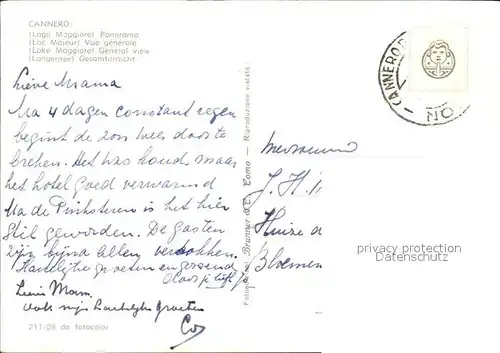 CANNERO:
(Lago Maggiore) Panorama
(Lac Majeur) Vue générale
(Lake Maggiore) General view
(Langensee) Gesamtansicht
Lieve Mama
Na 4 dagen constant regen
begint de zon weer door te
breken. Het was koud, maar
het hotel goed verwarmd
Na de Pinksteren is het hier
stil geworden. De gasten
zijn bijna allen vertrokken.
Hartelijke groeten en
Lieve Mam.
ook mijn hartelijke groeten
Co
217-08 da fotocolor
Brunner & C. Como - Riproduzione vietata
CANNERO
NO
Mevrouw
J. H.
Huize
Bloemen
privacy protection
Datenschutz